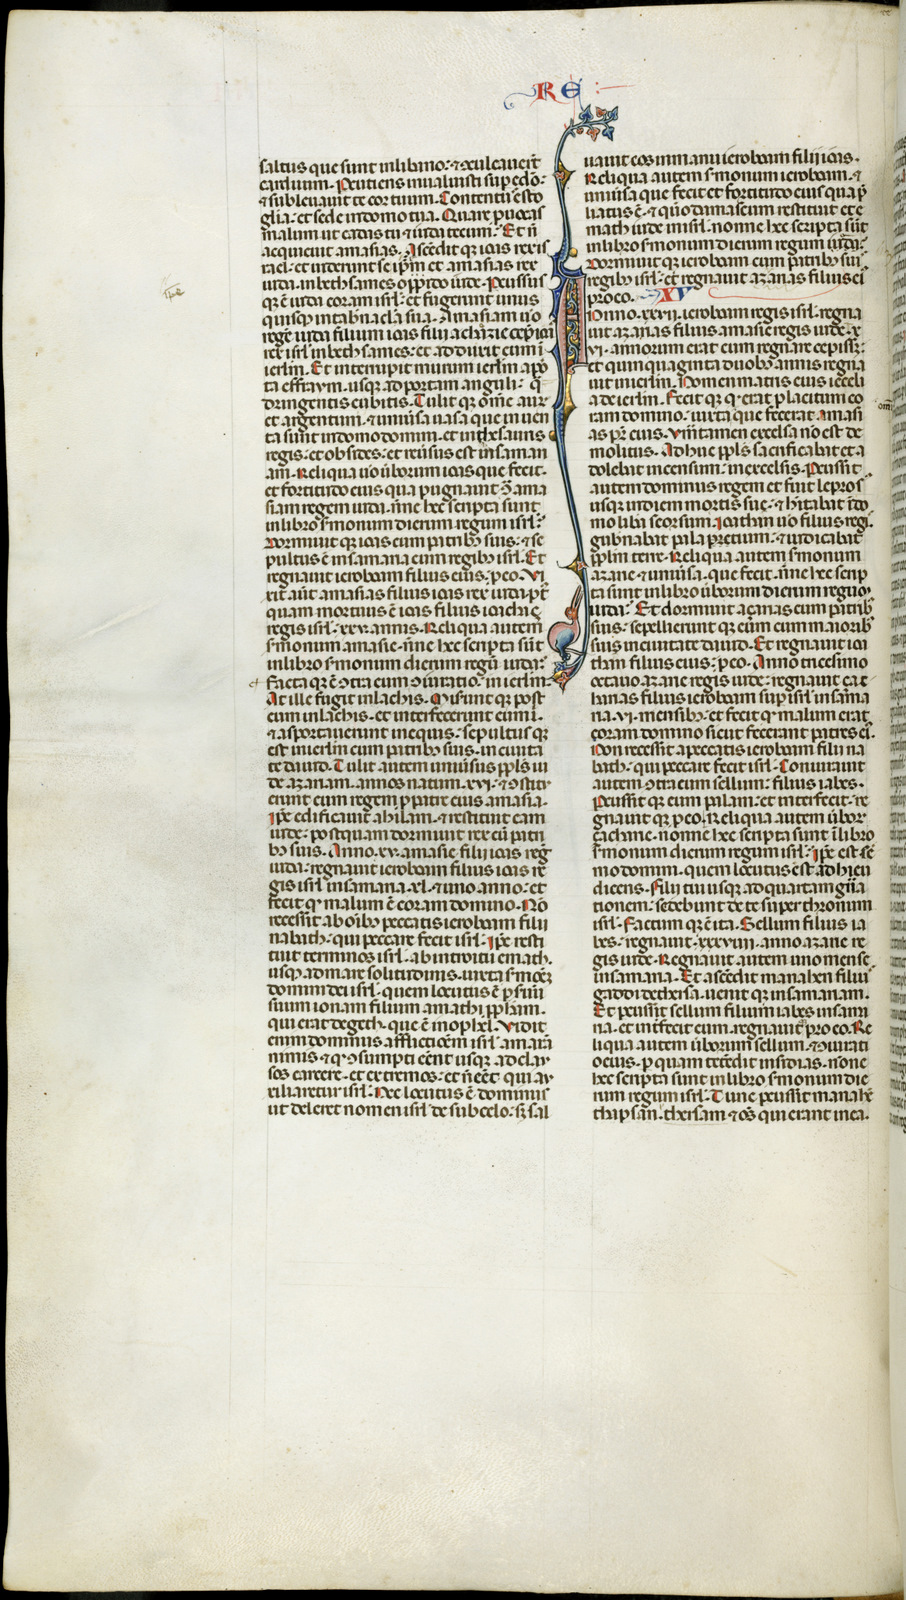 RE
saltus que sunt in libano· ⁊ ɔculcauerit
carduum· Percutiens inualuisti sup edō·
⁊ subleuauit te cor tuum· Contentus esto
glīa· et sede in domo tua· Quare puocas
malum ut cadas tu ⁊ iuda tecum· Et nō
acquieuit amasias· Ascēdit qȝ ioas rex is
rael· et uiderunt se ip̄i et amasias rex
iuda· in bethsames oppido iude· Percussus
qȝ ē iuda coram isrl̄· et fugerunt unus
quisqȝ in tabnacla sua· Amasiam uō
regē iuda filium ioas filii achazie cepit ioas
rex isrl̄ in bethsames· et adduxit eum ī
ierlm̄· Et interrupit murum ierlm̄ a por
ta effraym· usqȝ ad portam anguli· q̄
dringentis cubitis· Tulit qȝ om̄e aurū
et argentum· ⁊ uniūsa uasa que inuen
ta sunt in domo domini· et in thesauris
regis· et obsides· et reūsus est in saman
am· Reliqua uō ūborum ioas que fecit·
et fortitudo eius qua pugnauit ɔ̄ ama
siam regem iuda· nn̄e hec scripta sunt
in libro s̄monum dierum regum isrl̄·
Dormiuit qȝ ioas cum patribȝ suis· ⁊ se
pultus ē in samaria cum regibȝ isrl̄· Et
regnauit ieroboam filius eius· p eo· Vi
xit aūt amasias filius ioas rex iuda· pt̄
quam mortuus ē ioas filius ioachaȝ
regis isrl̄· xxv· annis· Reliqua autem
s̄monum amasie· nn̄e hec scripta sūt
in libro s̄monum dierum regū iuda·
Facta qȝ ē ɔtra eum ɔiuratio· in ierlm̄·
At ille fugit in lachis· Miserunt qȝ post
eum in lachis· et interfecerunt eum ī·
⁊ asportauerunt in equis· sepultus qȝ
est in ierlm̄ cum patribȝ suis· in ciuita
te dauid· Tulit autem uniūsus ppl̄s iu
de azariam· annos natum· xvi· ⁊ ɔstitu
erunt eum regem p patre eius amasia·
Ip̄e edificauit ahilam· ⁊ restituit eam
iude· postquam dormiuit rex cū patri
bȝ suis· Anno· xv· amasie filii ioas reḡ
iuda· regnauit ieroboam filius ioas re
gis isrl̄ in samaria· xl· ⁊ uno anno· et
fecit qȝ malum ē coram domino· Nō
recessit ab oībȝ peccatis ieroboam filii
nabath· qui peccare fecit isrl̄· Ip̄e resti
tuit terminos isrl̄· ab introitu emath·
usqȝ ad mare solitudinis· iuxta s̄mōeȝ
domini dei isrl̄· quem locutus ē p s̄uū
suum ionam filium amathi· pphām·
qui erat de geth· que ē in ophel· Vidit
enim dominus afflictiōem isrl̄ amarā
nimis· ⁊ qȝ ɔsumpti eēnt usqȝ ad clau
sos carcere· et extremos· et n̄ eēt· qui au
xiliaretur isrl̄· Nec locutus ē dominus
ut deleret nomen isrl̄ de sub celo· sȝ sal
uauit eos in manu ieroboam filii ioas·
Reliqua autem s̄monum ieroboam· ⁊
uniūsa que fecit et fortitudo eius qua p̄
liatus ē· ⁊ qūo damascum restituit et e
math iude in isrl̄· nonne hec scripta sūt
in libro s̄monum dierum regum iuda·
Dormiuit qȝ ieroboam cum patribȝ suis
regibȝ isrl̄· et regnauit azarias filius ei
p eo· XV
Anno· xxvii· ieroboam regis isrl̄· regna
uit azarias filius amasie regis iude· x
vi· annorum erat cum regnare cepisset·
et quinquaginta duobȝ annis regna
uit in ierlm̄· Nomen matris eius iecheli
a de ierlm̄· Fecit qȝ qȝ erat placitum co
ram domino· iuxta que fecerat amasi
as pr̄ eius· Vm̄tamen excelsa nō est de
molitus· Adhuc ppl̄s sacrificabat et a
dolebat incensum· in excelsis· Percussit
autem dominus regem et fuit leprosꝰ
usqȝ in diem mortis sue· ⁊ hītabat ī do
mo libera seorsum· Ioathan uō filius regis
gubnabat palacium· ⁊ iudicabat
pplm̄ terre· Reliqua autem s̄monum
azarie ⁊ uniūsa· que fecit· nn̄e hec scrip
ta sunt in libro ūborum dierum regum
iuda· Et dormiuit azarias cum patribȝ
suis· sepellierunt qȝ eum cum maioribȝ
suis in ciuitate dauid· Et regnauit ioa
than filius eius· p eo· Anno tricesimo
octauo azarie regis iude· regnauit zac
harias filius ieroboam sup isrl̄ in sama
ria· vi· mensibȝ· et fecit qȝ malum erat
coram domino sicut fecerant patres ei·
Non recessit a peccatis ieroboam filii na
bath· qui peccare fecit isrl̄· Coniurauit
autem ɔtra eum sellum· filius iabes·
Percussit qȝ eum palam· et interfecit· re
gnauit qȝ p eo· Reliqua autem ūbor
zacharie· nonne hec scripta sunt ī libro
s̄monum dierum regum isrl̄· Ip̄e est s̄
mo domini· quem locutus ē st ad hieu
dicens· Filii tui usqȝ ad quartam gn̄a
tionem· sedebunt de te super thronum
isrl̄· Factum qȝ ē ita· Sellum filius ia
bes· regnauit· xxxviiii· anno azarie re
gis iude· Regnauit autem uno mense
in samaria· Et ascēdit manahen filius
gaddi de thersa· uenit qȝ in samariam·
Et percussit sellum filium iabes in sama
ria· et int̄fecit eum· regnauit pro eo· Re
liqua autem ūborum sellum· ⁊ ɔiurati
o eius· p quam tetēdit insidias· n̄one
hec scripta sunt in libro s̄monum die
rum regum isrl̄· Tunc percussit manahē
thapsam· thersam· ⁊ oēs qui erant in ea·